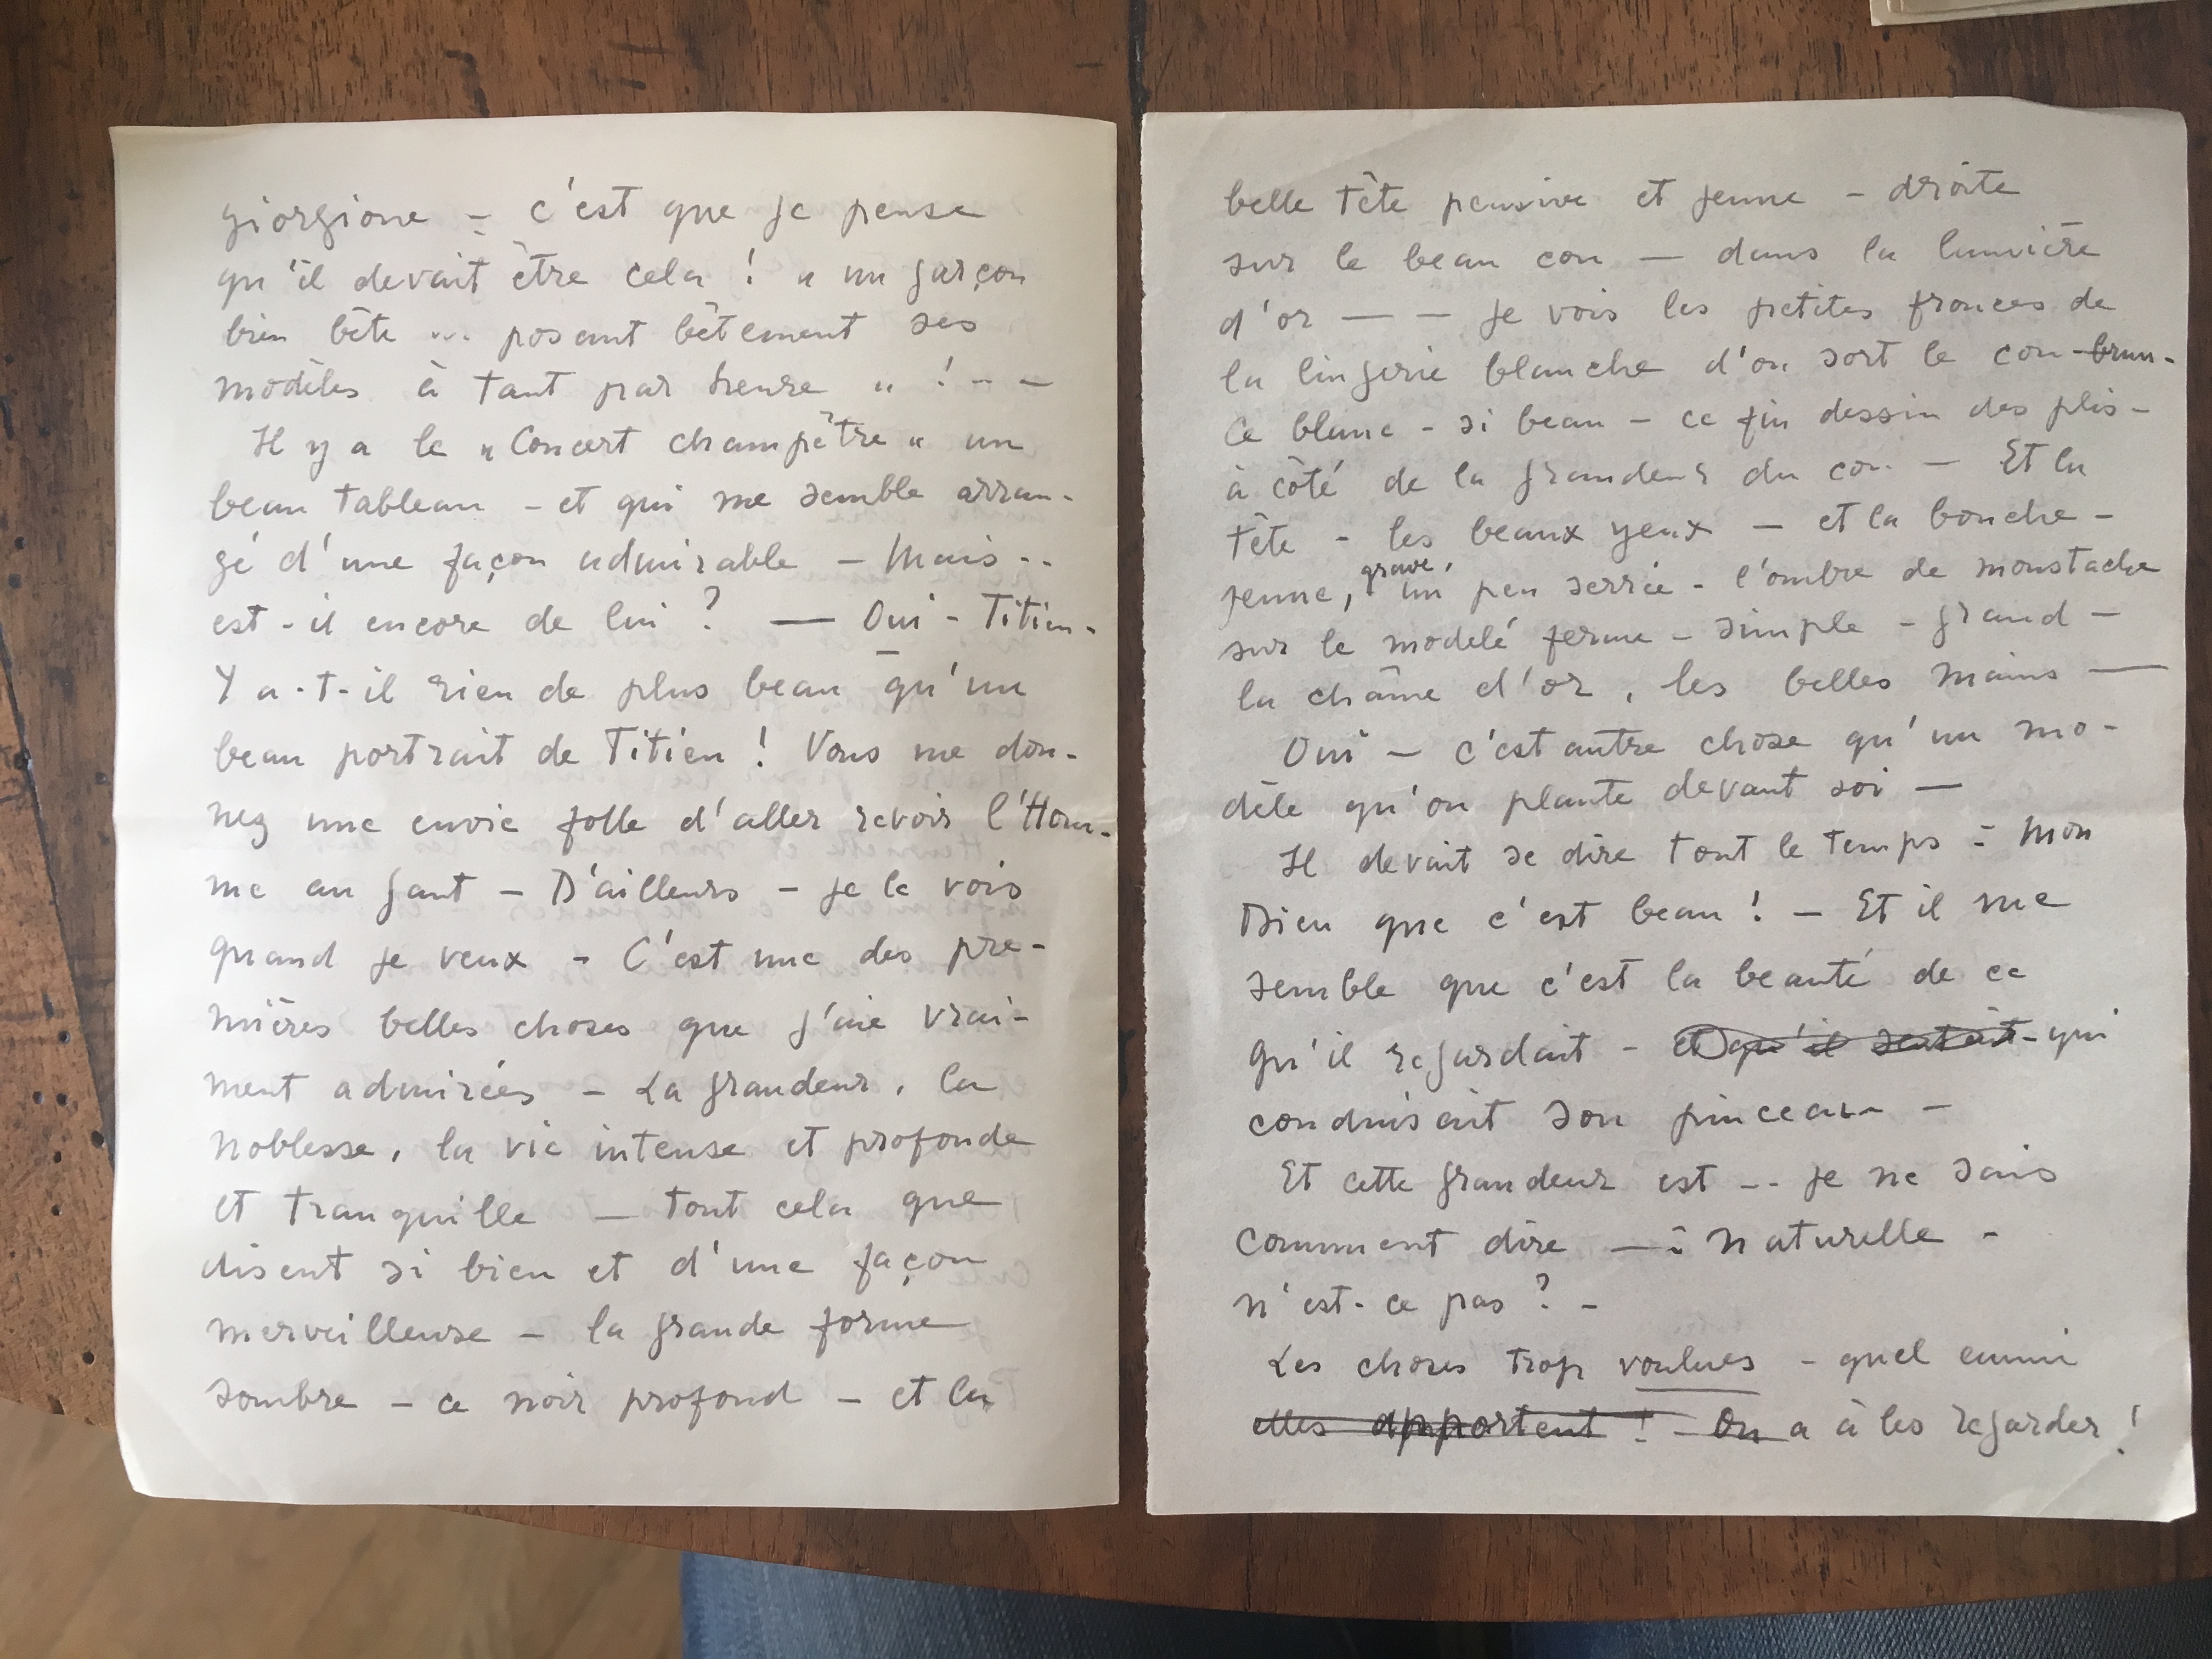 giorgione – c'est que je pense
qu'il devait être cela ! « un garçon
bien bête ... posant bêtement ses
modèles à tant par heure « ! – –
Il y a le « Concert champêtre « un
beau tableau – et qui me semble arran-
gé d'une façon admirable – Mais ..
est-il encore de lui ? — Oui – Titien –
Y a-t-il rien de plus beau qu'un
beau portrait de Titien ! Vous me don-
nez une envie folle d'aller revoir l'Hom-
me au gant – D'ailleurs – je le vois
quand je veux – C'est une des pre-
mières belles choses que j'aie vrai-
ment admirées – La grandeur, la
noblesse, la vie intense et profonde
et tranquille — tout cela que
disent si bien et d'une façon
merveilleuse – la grande forme
sombre – ce noir profond – et la
belle tête pensive et jeune – droite
sur le beau cou — dans la lumière
d'or — — je vois les petites fronces de
la lingerie blanche d'ou sort le cou - brun -
Ce blanc – si beau – ce fin dessin des plis –
à côté de la grandeur du cou – Et la
tête – les beaux yeux – et la bouche –
jeune, grave, un peu serrée – l'ombre de moustache
sur le modelé ferme – simple – grand –
la chaîne d'or, les belles mains —
Oui – c'est autre chose qu'un mo-
dèle qu'on plante devant soi —
Il devait se dire tout le temps : Mon
Dieu que c'est beau ! – Et il me
semble que c'est la beauté de ce
qu'il regardait – et qu'il sentait – qui
conduisait son pinceau –
Et cette grandeur est .. je ne sais
comment dire — : naturelle –
n'est-ce pas ? –
Les choses trop voulues – quel ennui
elles apportent ! – On a à les regarder !